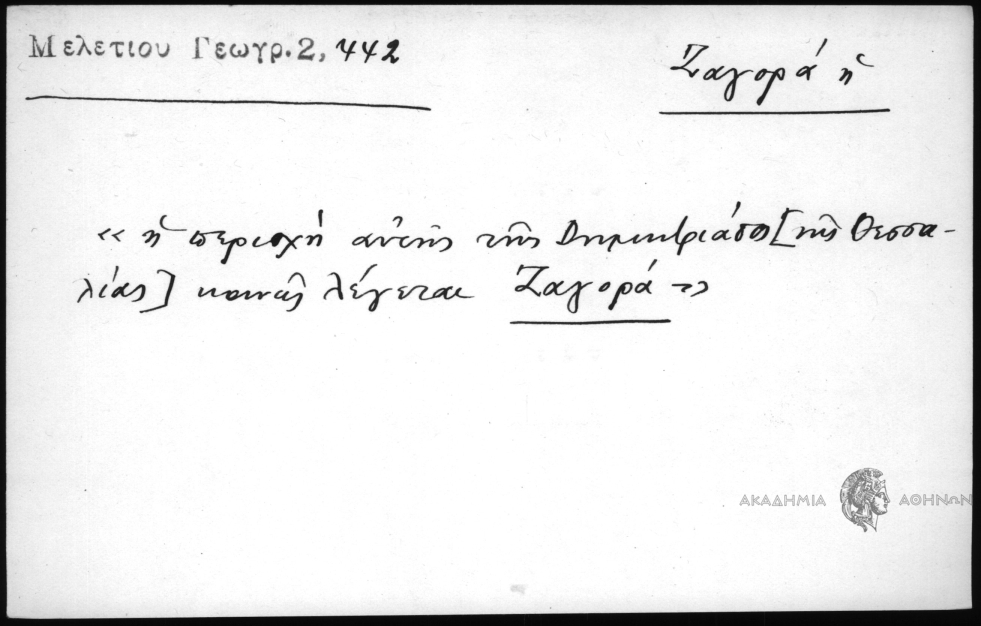 Μελετίου Γεωγρ. 2, 442
Ζαγορά ἡ
« ἡ περιοχὴ αὐτῆς τῆς Δημητριάδος [τῆς Θεσσα-
λίας] κοινῶς λέγεται Ζαγορά »
ΑΚΑΔΗΜΙΑ ΑΘΗΝΩΝ